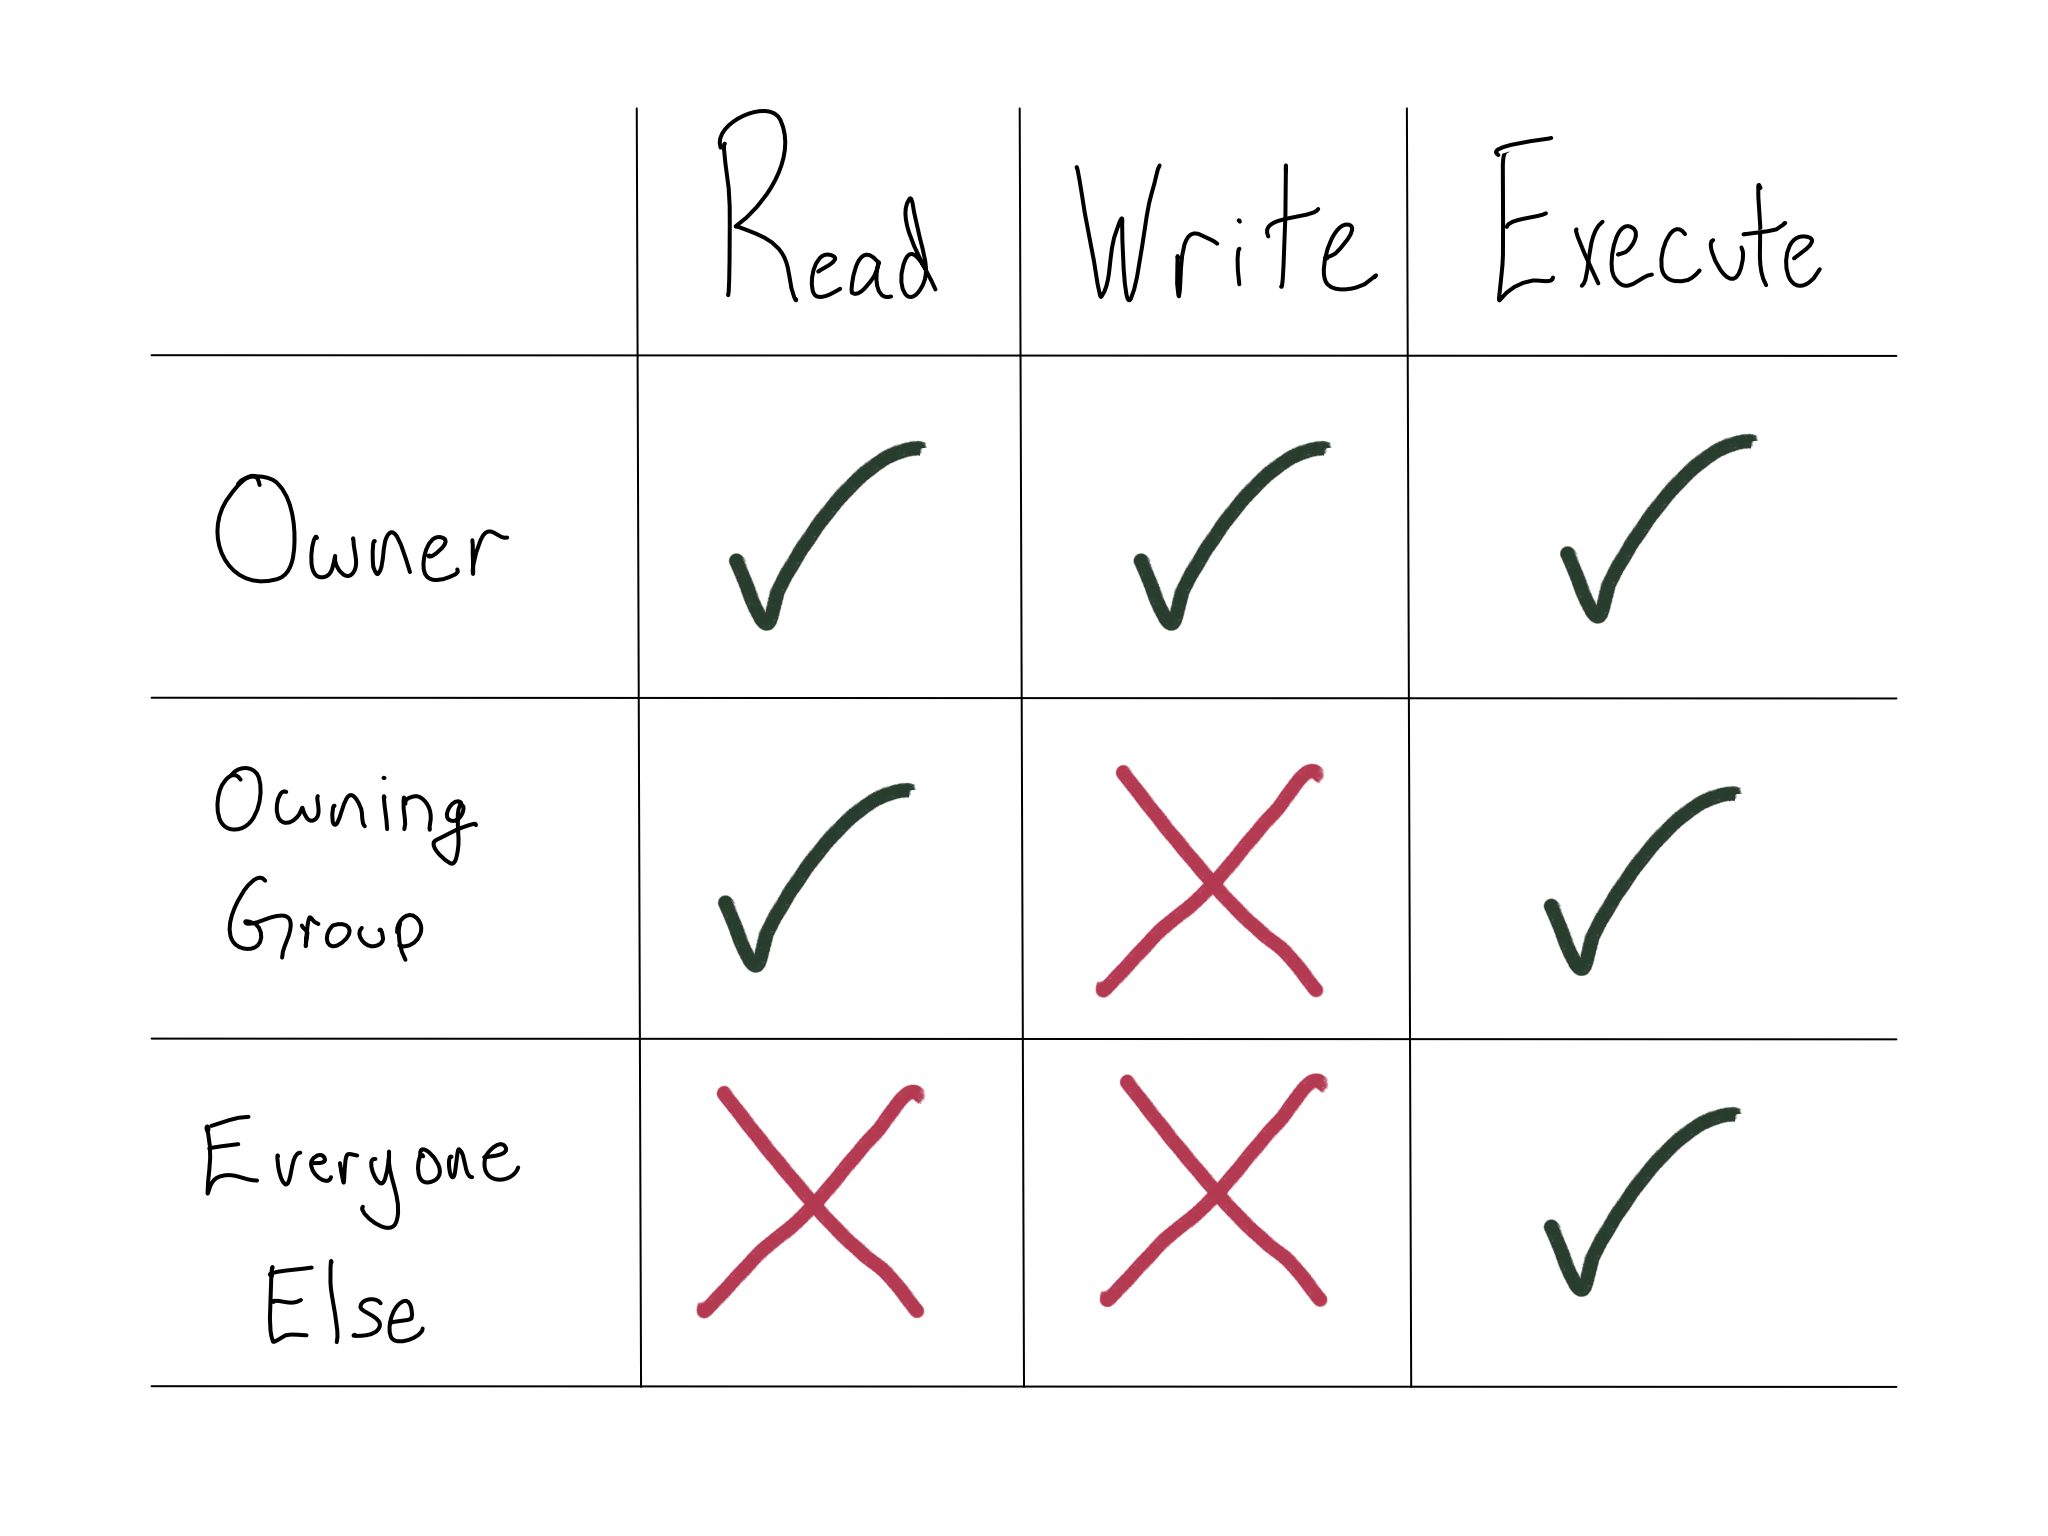 Read Write Execute
Owner
Owning
Group
Everyone
Else